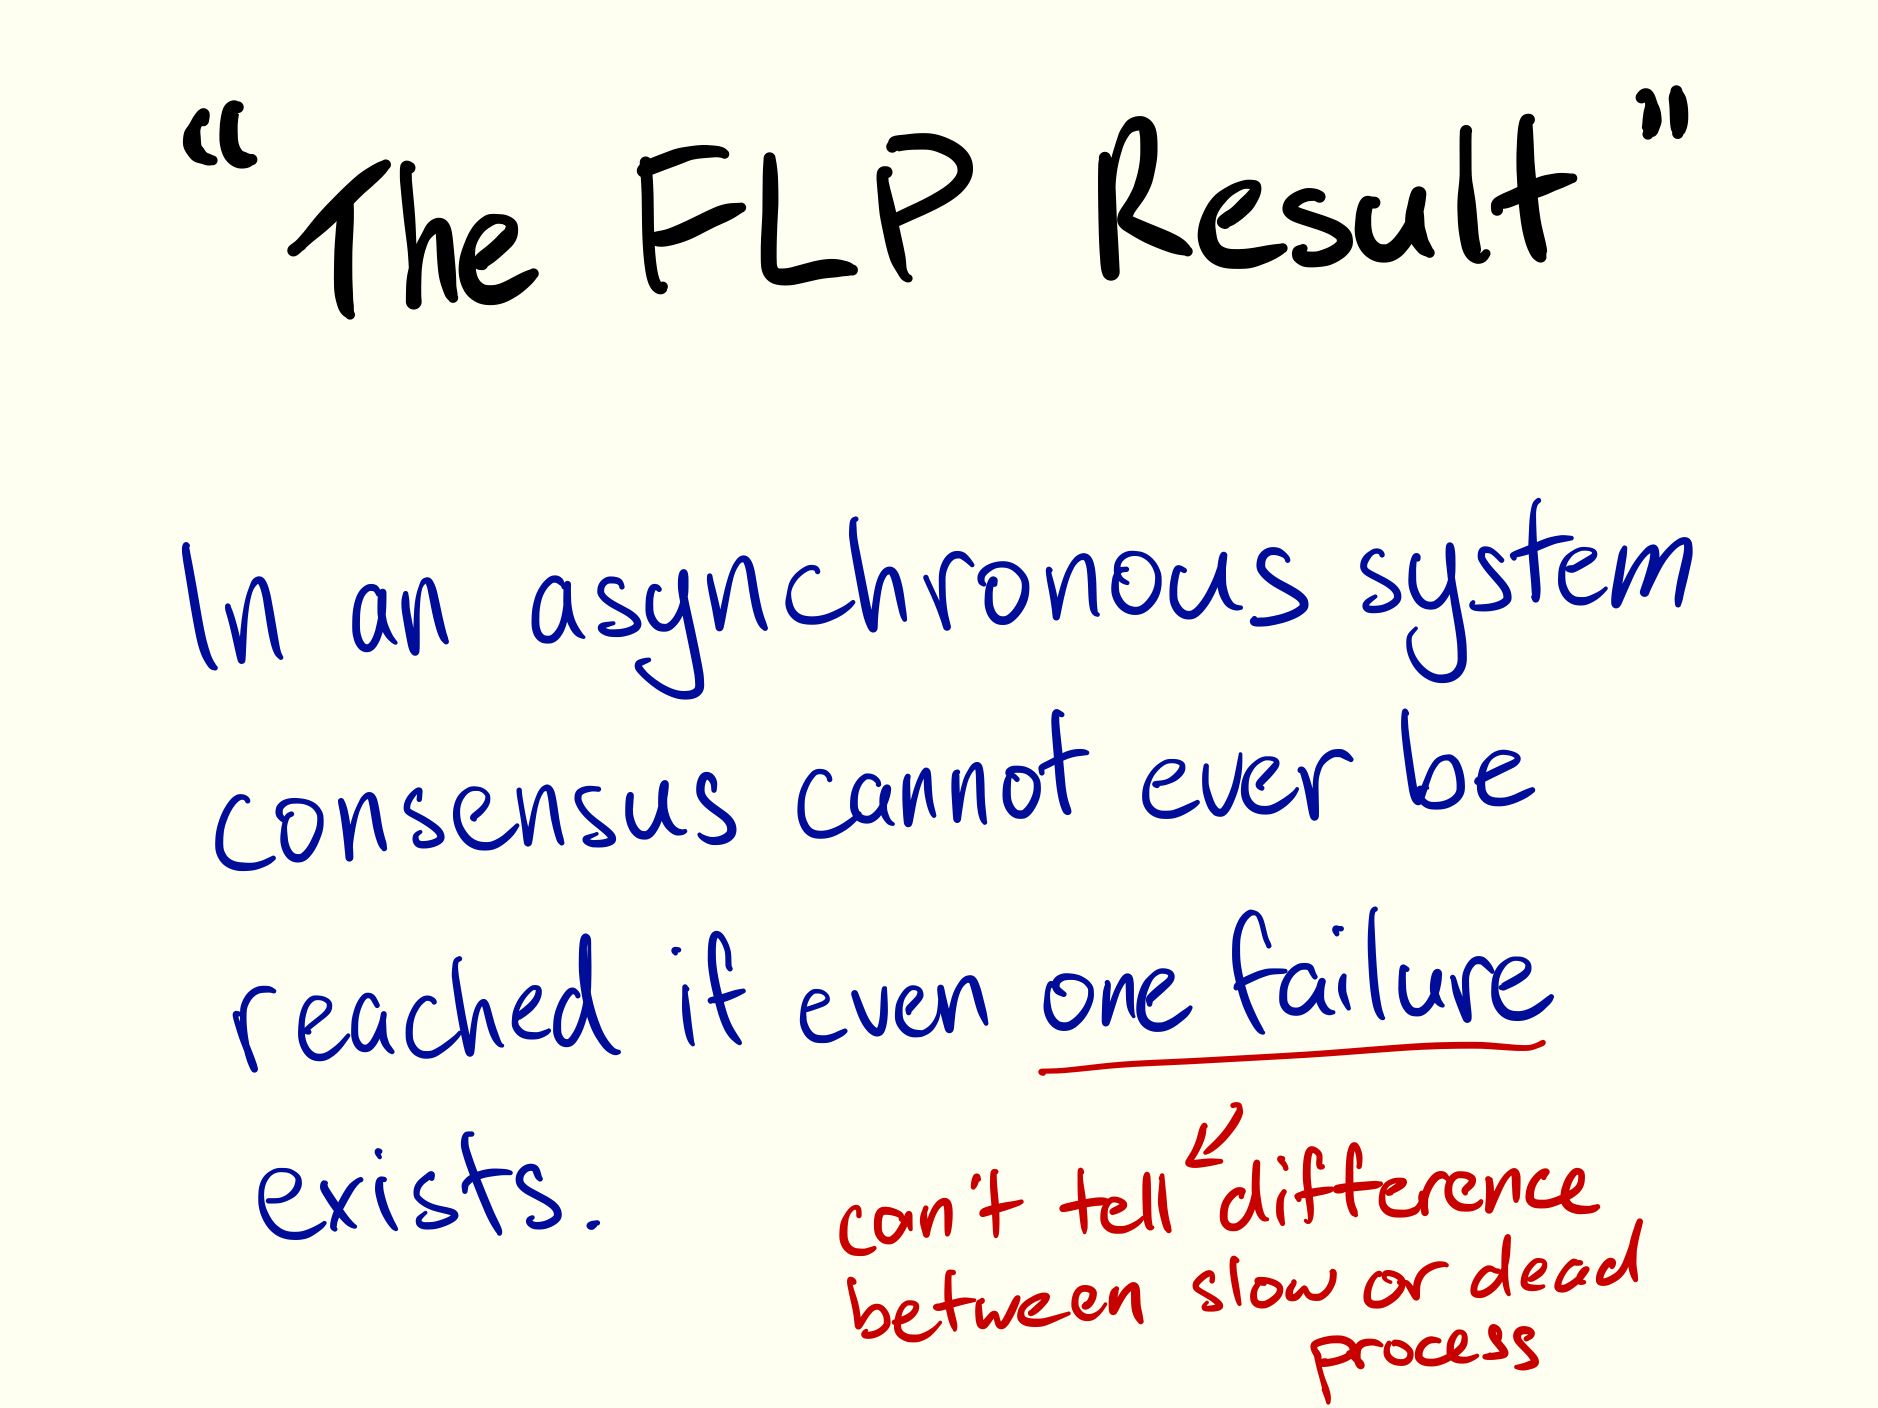 “The FLP Result”
In an asynchronous system
consensus cannot ever be
reached if even one failure
exists.
can't tell difference
between slow or dead
process